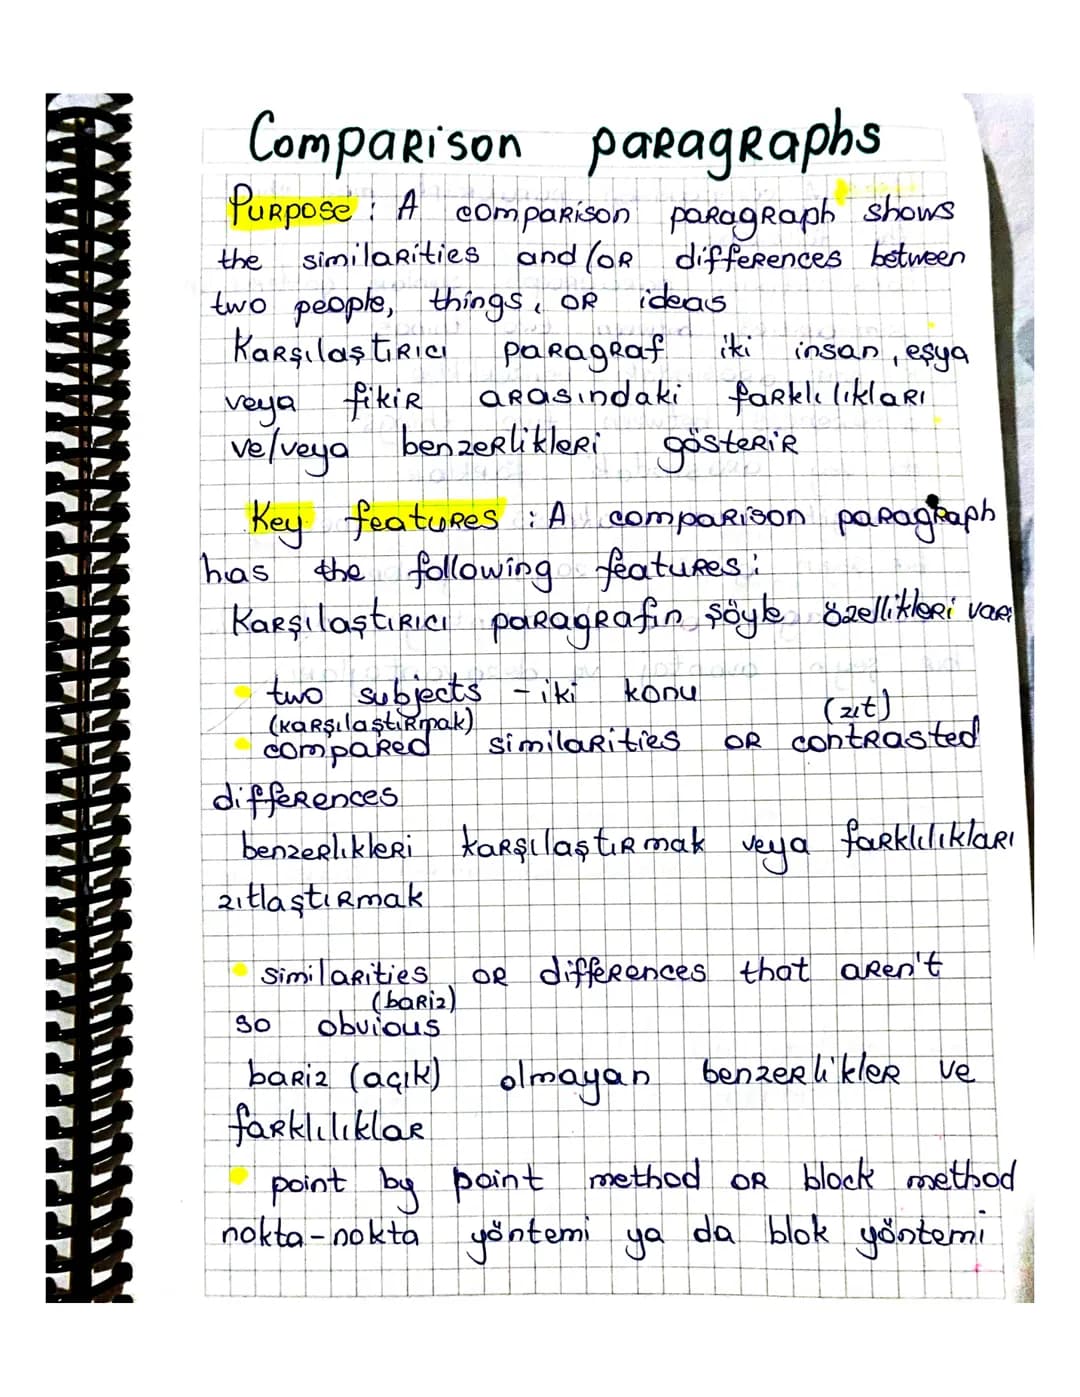 Comparison paragraphs
Purpose : A comparison paragraph shows
the similarities and/or differences between
two people, things, or ideas
Karşılaştırıcı paragraf iki insan, eşya
veya fikir arasındaki farklılıkları
ve/veya benzerlikleri gösterir
Key features : A comparison paragraph
has the following features:
Karşılaştırıcı paragrafın şöyle özellikleri var:
• two subjects - iki konu
(karşılaştırmak) (zıt)
• compared similarities or contrasted
differences
benzerlikleri karşılaştırmak veya farklılıkları
zıtlaştırmak
• similarities or differences that aren't
(bariz)
so obvious
bariz (açık) olmayan benzerlikler ve
farklılıklar
• point by point method or block method
nokta-nokta yöntemi ya da blok yöntemi